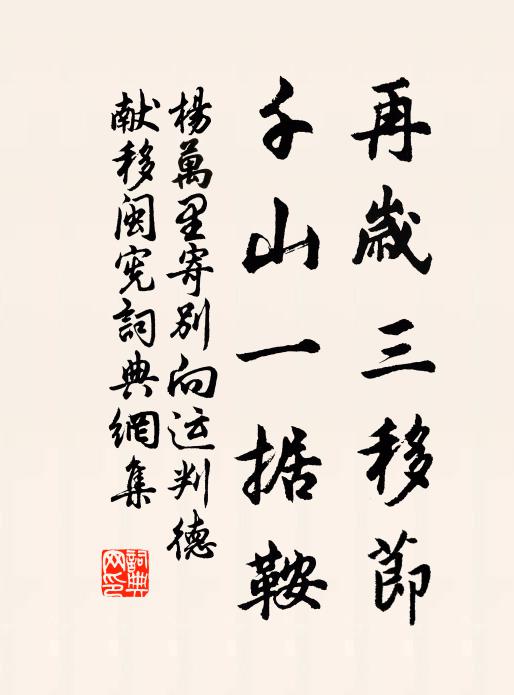 再歲三移節
千山一据鞍
楊萬里寄別向運判德
献移閩宪詞典網集
詞典网印